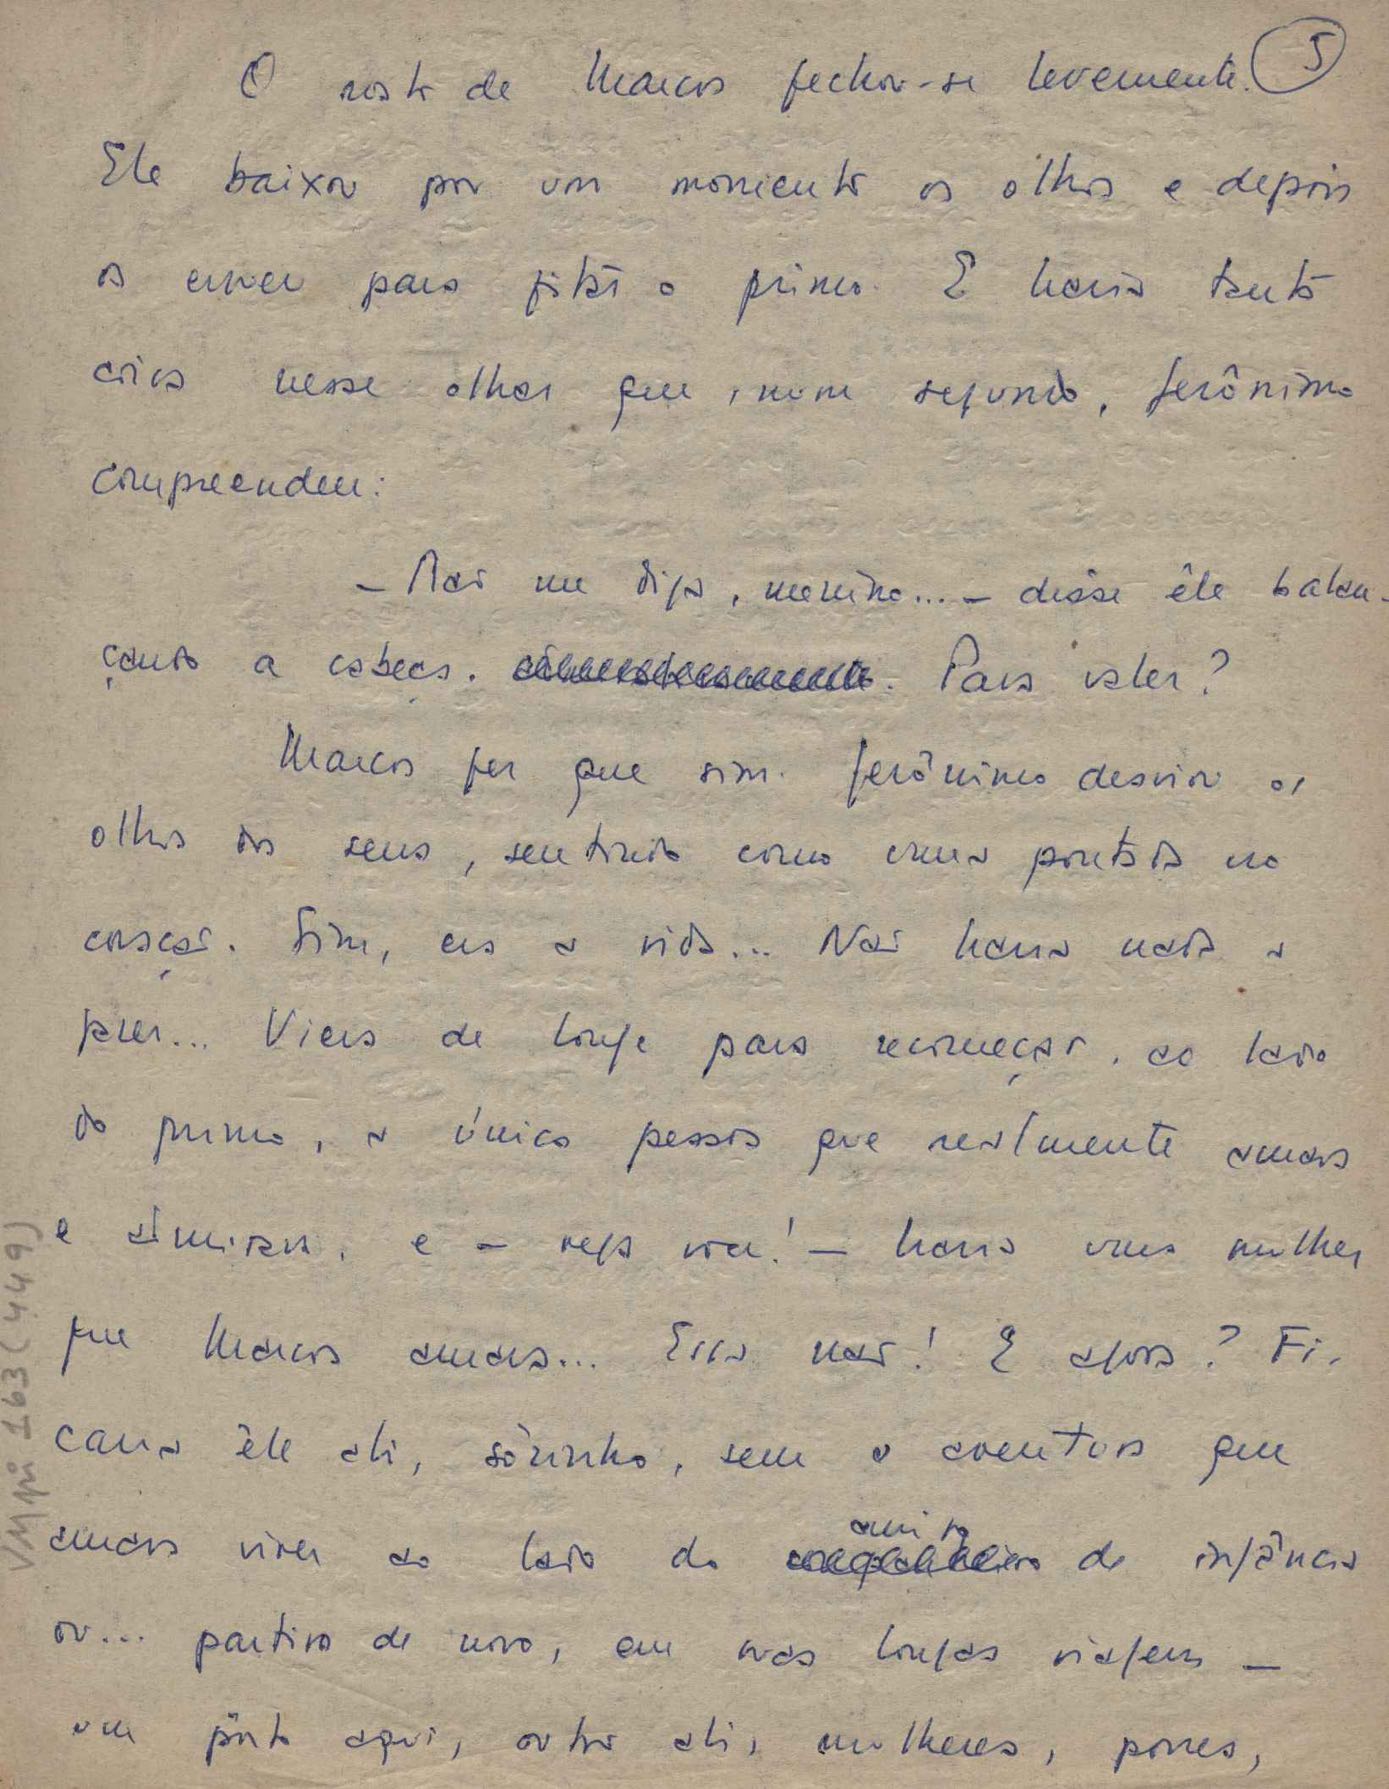 5
O rosto de Marcos fechou-se levemente.
Ele baixou por um momento os olhos e depois
os ergueu para fitar o primo. E havia tanta
coisa nesse olhar que, num segundo, Jerônimo
compreendeu:
— Não me diga, menino... — disse êle balan-
çando a cabeça. Para valer?
Marcos fez que sim. Jerônimo desviou os
olhos dos seus, sentindo como uma pontada no
coração. Sim, era a vida... Não havia nada a
fazer... Viera de longe para recomeçar, ao lado
do primo, a única pessoa que realmente amava
e admirava, e — veja você! — havia uma mulher
que Marcos amava... Essa não! E agora? Fi-
caria êle ali, sòzinho, sem a aventura que
amava viver ao lado do amigo de infância
ou... partiria de novo, em suas longas viagens —
um pôrto aqui, outro ali, mulheres, porres,
VMpi 163 (449)